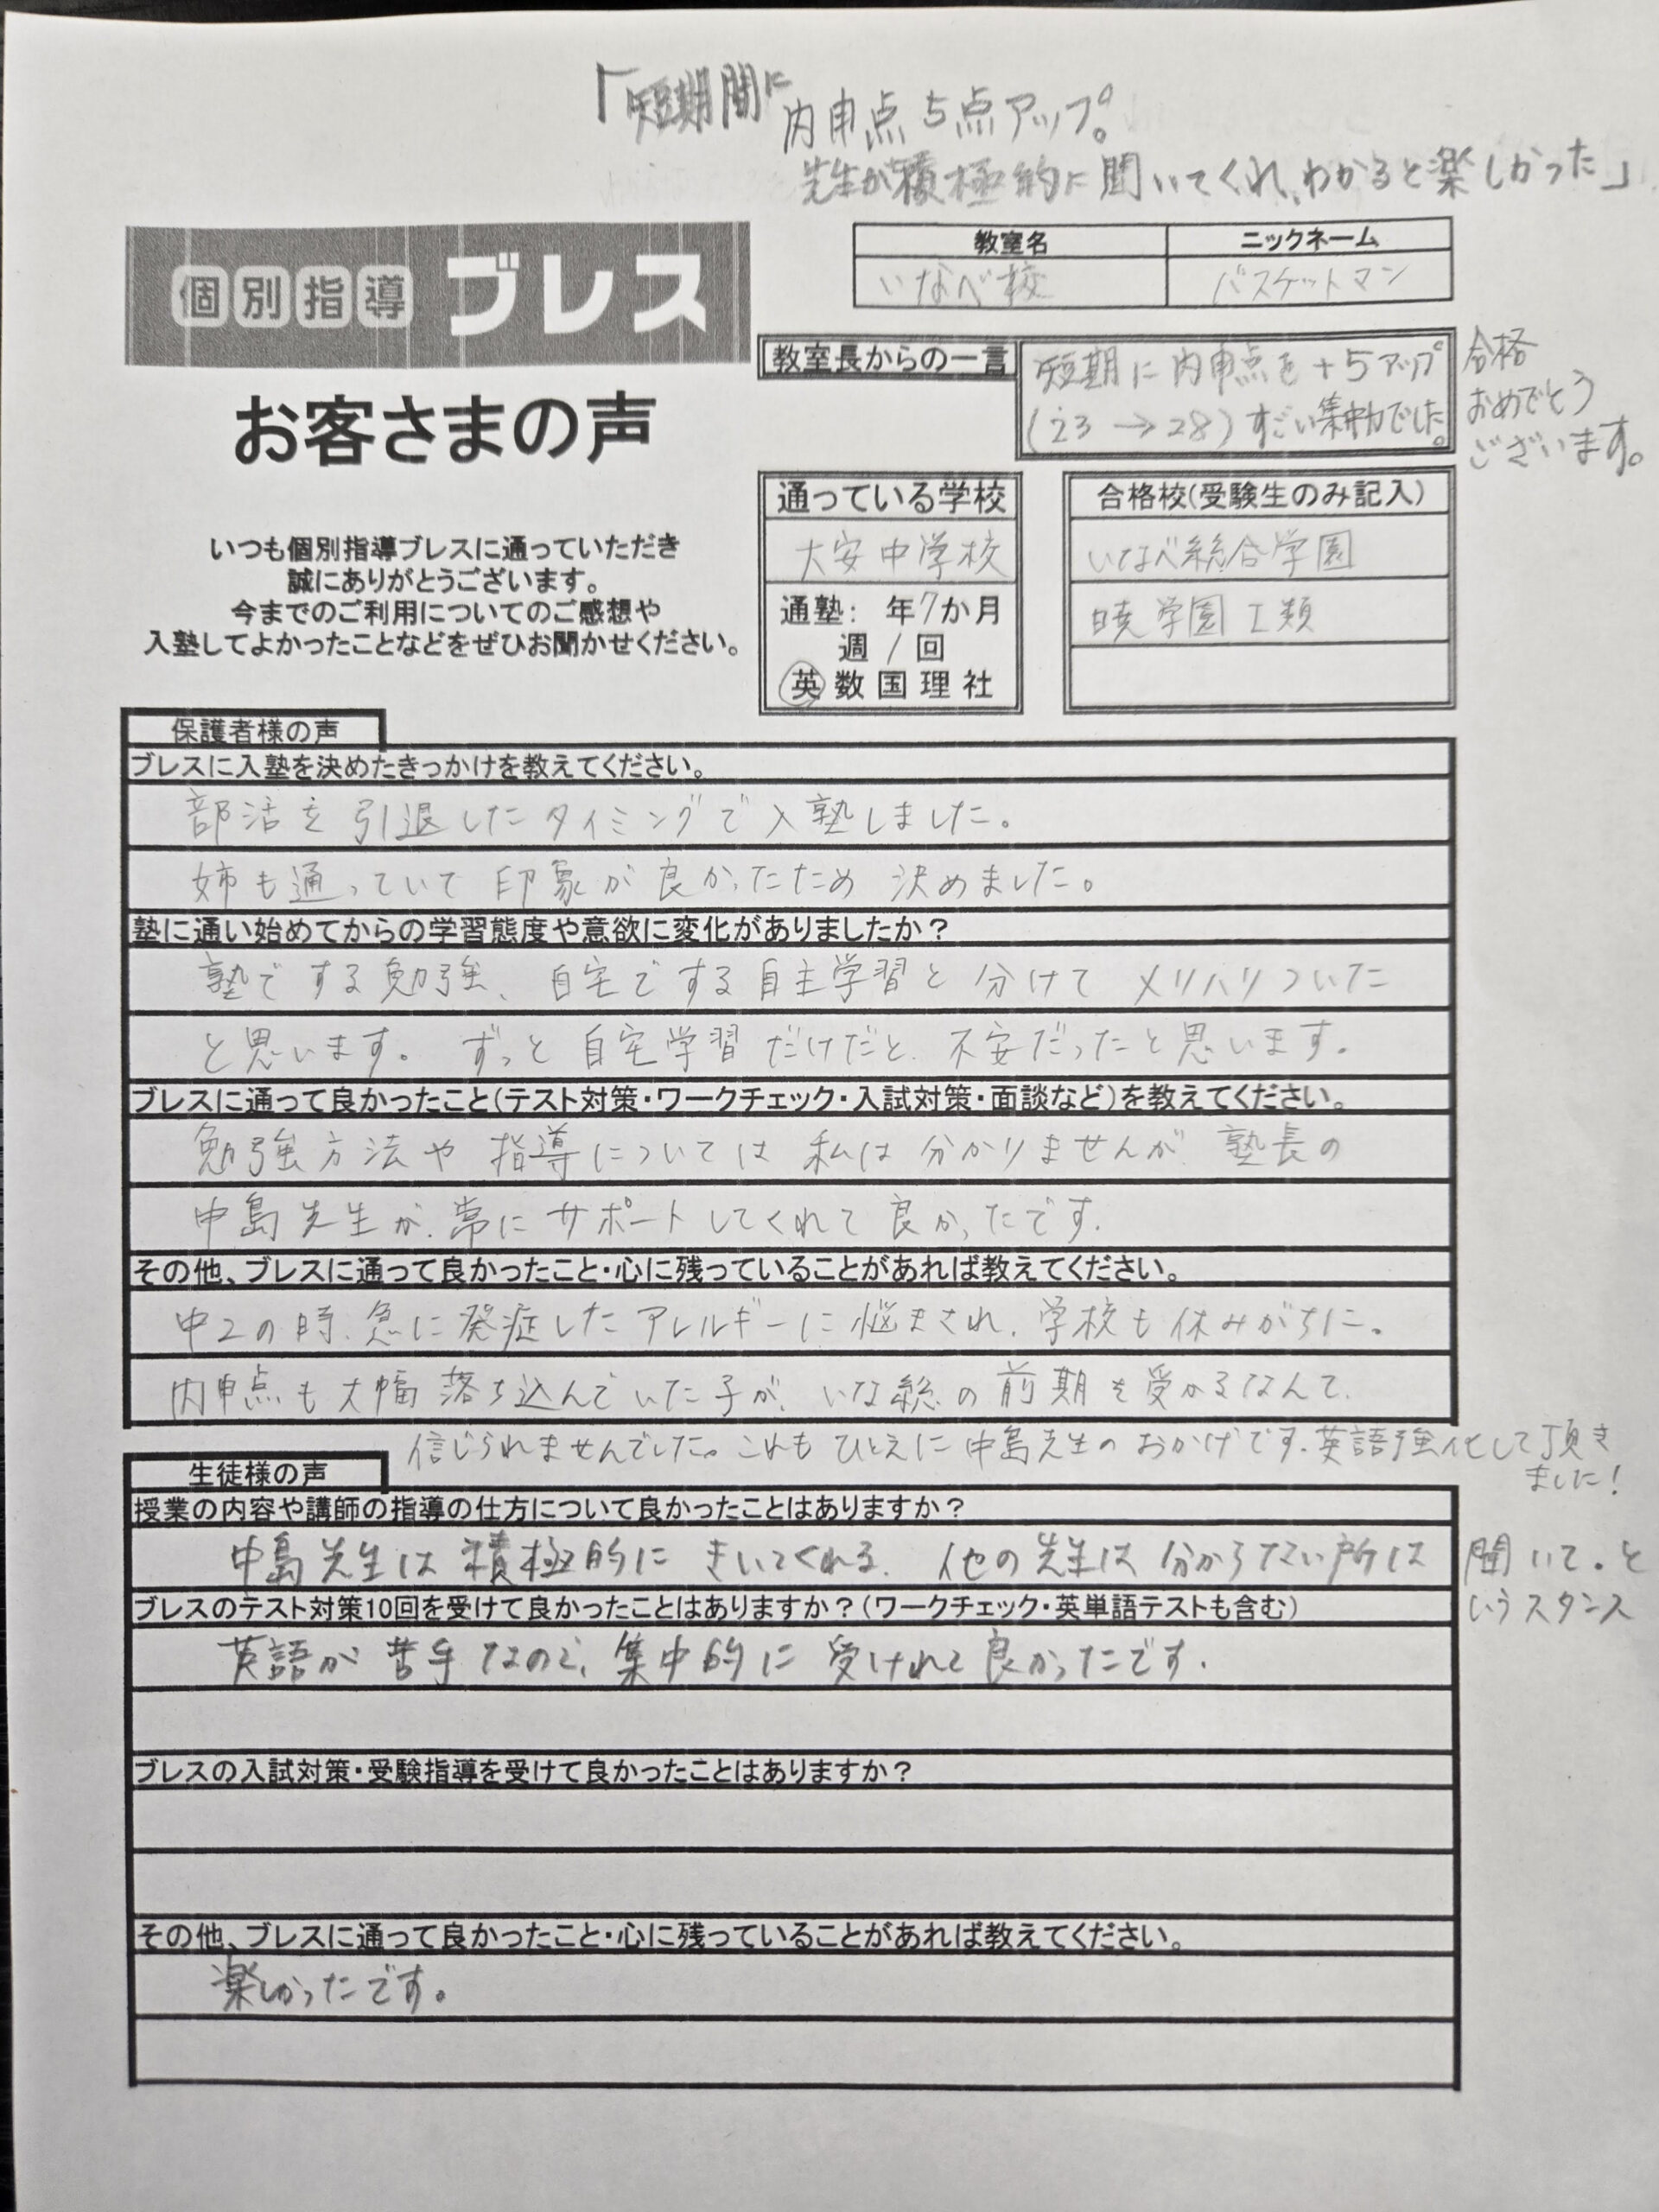 「短期間に
内申点5点アップ。
先生が積極的に聞いてくれ、わかると楽しかった」
個別指導 ブレス
教室名
ニックネーム
いなべ校
バスケットマン
お客さまの声
教室長からの一言
短期に内申点を+5アップ
(23→28)すごい集中力でした。
合格
おめでとう
ございます。
いつも個別指導ブレスに通っていただき
誠にありがとうございます。
今までのご利用についてのご感想や
入塾してよかったことなどをぜひお聞かせください。
通っている学校
大安中学校
通塾: 年7か月
週1回
英数国理社
合格校(受験生のみ記入)
いなべ総合学園
暁学園 I類
保護者様の声
ブレスに入塾を決めたきっかけを教えてください。
部活を引退したタイミングで入塾しました。
姉も通っていて印象が良かったため決めました。
塾に通い始めてからの学習態度や意欲に変化がありましたか?
塾でする勉強、自宅でする自主学習と分けてメリハリついた
と思います。ずっと自宅学習だけだと、不安だったと思います。
ブレスに通って良かったこと(テスト対策・ワークチェック・入試対策・面談など)を教えてください。
勉強方法や指導については私は分かりませんが、塾長の
中島先生が、常にサポートしてくれて良かったです。
その他、ブレスに通って良かったこと・心に残っていることがあれば教えてください。
中2の時、急に発症したアレルギーに悩まされ、学校も休みがちに。
内申点も大幅落ち込んでいた子が、いな総の前期を受かるなんて、
信じられませんでした。これもひとえに中島先生のおかげです。英語強化して頂き
ました!
生徒様の声
授業の内容や講師の指導の仕方について良かったことはありますか?
中島先生は積極的にきいてくれる。他の先生は分からない所は
聞いて。と
いうスタンス
ブレスのテスト対策10回を受けて良かったことはありますか?(ワークチェック・英単語テストも含む)
英語が苦手なので、集中的に受けれて良かったです。
ブレスの入試対策・受験指導を受けて良かったことはありますか?
その他、ブレスに通って良かったこと・心に残っていることがあれば教えてください。
楽しかったです。